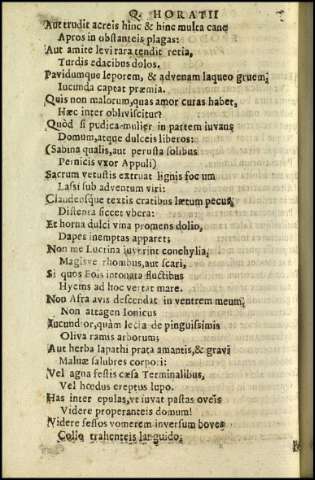 Q. HORATII
Aut trudit acreis hinc & hinc multa cane
Apros in obstanteis plagas:
Aut amite levi rara tendit retia,
Turdis edacibus dolos.
Pavidumque leporem, & advenam laqueo gruem;
Iucunda captat præmia.
Quis non malorum, quas amor curas habet,
Hæc inter obliviscitur?
Quòd si pudica mulier in partem iuvans
Domum, atque dulceis liberos:
(Sabina qualis, aut perusta solibus
Pernicis vxor Appuli)
Sacrum vetustis extruat lignis focum
Lassi sub adventum viri:
Claudensque textis cratibus lætum pecus,
Distenta siccet vbera:
Et horna dulci vina promens dolio,
Dapes inemptas apparet;
Non me Lucrina juverint conchylia,
Magisve rhombus, aut scari,
Si quos Eois intonata fluctibus
Hyems ad hoc vertat mare.
Non Afra avis descendat in ventrem meum,
Non attagen Ionicus
Iucundior, quàm lecta de pinguissimis
Oliva ramis arborum;
Aut herba lapathi prata amantis, & gravi
Malvæ salubres corpori:
Vel agna festis cæsa Terminalibus,
Vel hœdus ereptus lupo.
Has inter epulas, ve iuvat pastas oveis
Videre properanteis domum!
Videre fessos vomerem inversum boves
Collo trahenteis languido;